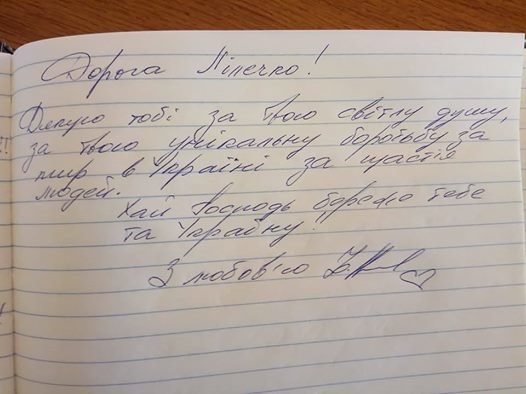 Дорога Лілечко!
Дякую тобі за твою світлу душу,
за твою унікальну боротьбу за
мир в Україні за щастя
людей.
Хай Господь береже тебе
та Україну!
З любов'ю